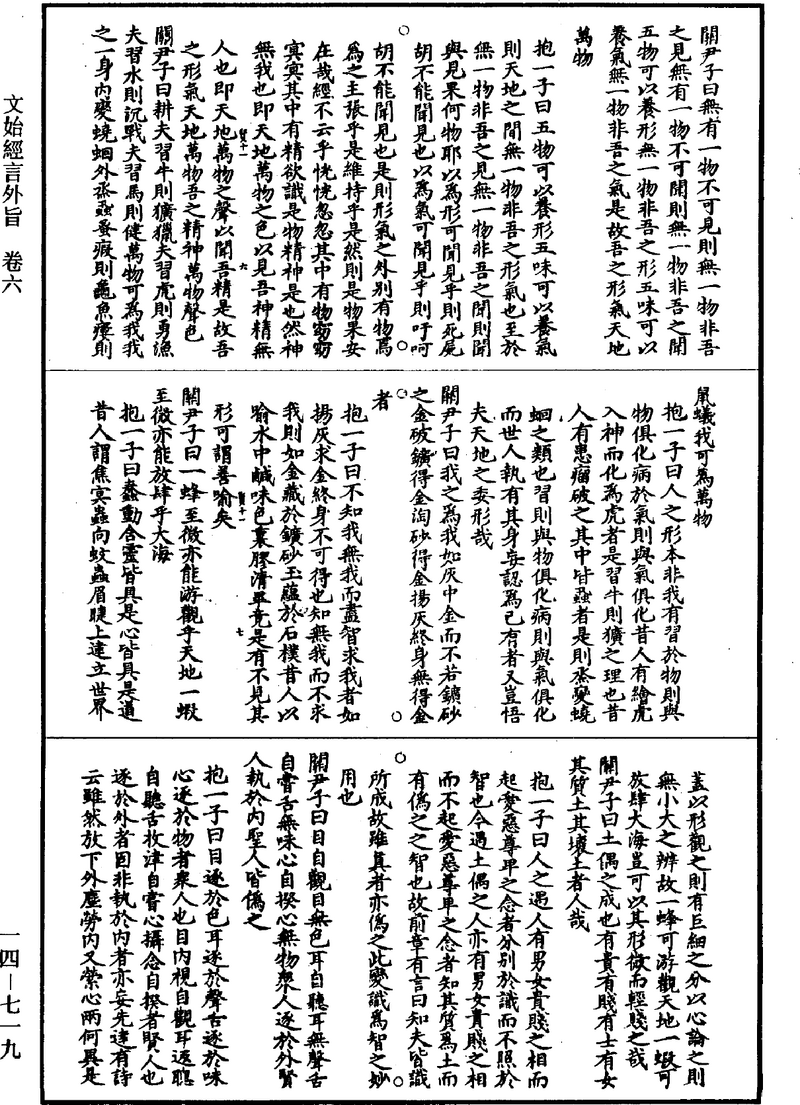 關尹子曰無有一物不可見則無一物非吾
之見無有一物不可聞則無一物非吾之聞
五物可以養形無一物非吾之形五味可以
養氣無一物非吾之氣是故吾之形氣天地
萬物
抱一子曰五物可以養形五味可以養氣
則天地之間無一物非吾之形氣也至於
無一物非吾之見無一物非吾之聞則聞
與見果何物耶以為形可聞見乎則死屍
胡不能聞見也以為氣可聞見乎則吁呵
胡不能聞見也是則形氣之外別有物焉
為之主張乎是維持乎是然則是物果安
在哉經不云乎恍恍忽忽其中有物窈窈
寞寞其中有精欲識是物精神是也然神
無我也即天地萬物之色以見吾神精無
賢十一 六
人也即天地萬物之聲以聞吾精是故吾
之形氣天地萬物吾之精神萬物聲色
關尹子曰耕夫習牛則獷獵夫習虎則勇漁
夫習水則沉戰夫習馬則健萬物可為我我
之一身內變蟯蛔外烝蝨蚤瘕則龜魚瘻則
鼠蟻我可為萬物
抱一子曰人之形本非我有習於物則與
物俱化病於氣則與氣俱化昔人有繪虎
入神而化為虎者是習牛則獷之理也昔
人有患瘤破之其中皆蝨者是則烝變蟯
蛔之類也習則與物俱化病則與氣俱化
而世人執有其身妄認為己有者又豈悟
夫天地之委形哉
關尹子曰我之為我如灰中金而不若鑛砂
之金破鑛得金淘砂得金揚灰終身無得金
者
抱一子曰不知我無我而盡智求我者如
揚灰求金終身不可得也知無我而不求
我則如金藏於鑛砂玉蘊於石樸昔人以
喻水中鹹味色裏膠清畢竟是有不見其
賢十一 七
形可謂善喻矣
關尹子曰一蜂至微亦能游觀乎天地一蝦
至微亦能放肆乎大海
抱一子曰蠢動含靈皆具是心皆具是道
昔人謂焦寞蟲向蚊蟲眉睫上建立世界
蓋以形觀之則有巨細之分以心論之則
無小大之辨故一蜂可游觀天地一蝦可
放肆大海豈可以其形微而輕賤之哉
關尹子曰土偶之成也有貴有賤有士有女
其質土其壞土者人哉
抱一子曰人之遇人有男女貴賤之相而
起愛惡尊卑之念者分別於識而不照於
智也今遇土偶之人亦有男女貴賤之相
而不起愛惡尊卑之念者知其質為土而
有偽之之智也故前章有言曰知夫皆識
所成故雖真者亦偽之此變識為智之妙
用也
關尹子曰目自觀目無色耳自聽耳無聲舌
自嘗舌無味心自揆心無物眾人逐於外賢
人執於內聖人皆偽之
抱一子曰目逐於色耳逐於聲舌逐於味
心逐於物者眾人也目內視自觀耳返聽
自聽舌收津自嘗心攝念自揆者賢人也
逐於外者固非執於內者亦妄先達有詩
云雖然放下外塵勞內又縈心兩何異是
文始經言外旨 卷六
一四—七一九